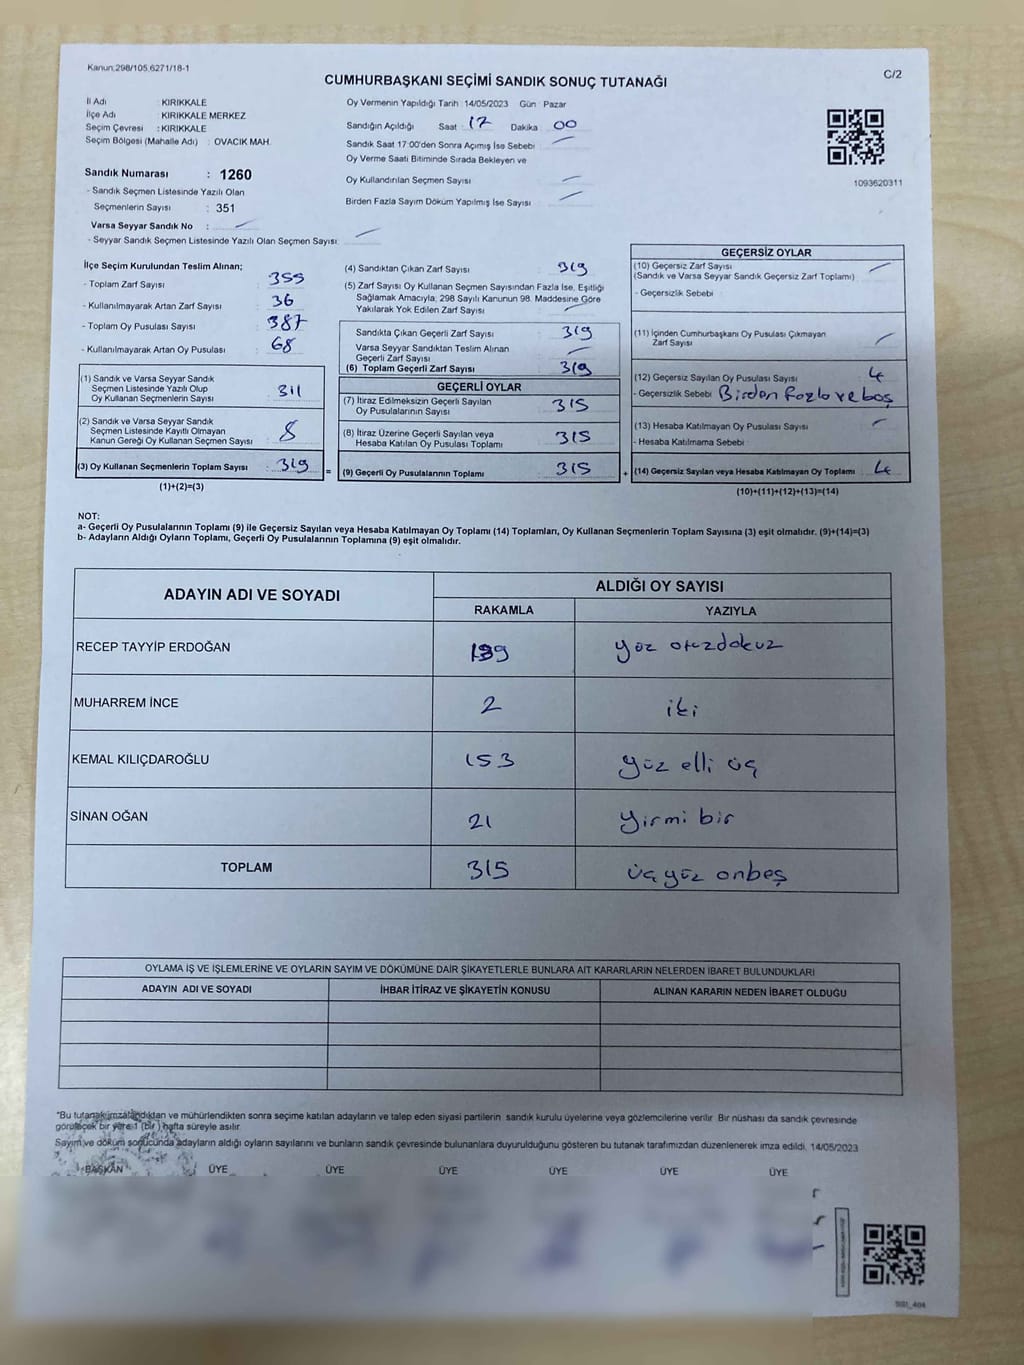 Kanun;298/105,6271/18-1
C/2
CUMHURBAŞKANI SEÇİMİ SANDIK SONUÇ TUTANAĞI
İl Adı : KIRIKKALE
İlçe Adı : KIRIKKALE MERKEZ
Seçim Çevresi : KIRIKKALE
Seçim Bölgesi (Mahalle Adı) : OVACIK MAH.
Sandık Numarası : 1260
- Sandık Seçmen Listesinde Yazılı Olan
Seçmenlerin Sayısı : 351
Varsa Seyyar Sandık No :
- Seyyar Sandık Seçmen Listesinde Yazılı Olan Seçmen Sayısı:
Oy Vermenin Yapıldığı Tarih 14/05/2023 Gün Pazar
Sandığın Açıldığı Saat : 17 Dakika 00
Sandık Saat 17:00'den Sonra Açımış İse Sebebi
Oy Verme Saati Bitiminde Sırada Bekleyen ve
Oy Kullandırılan Seçmen Sayısı
Birden Fazla Sayım Döküm Yapılmış İse Sayısı
1093620311
İlçe Seçim Kurulundan Teslim Alınan;
- Toplam Zarf Sayısı : 355
- Kullanılmayarak Artan Zarf Sayısı : 36
- Toplam Oy Pusulası Sayısı : 387
- Kullanılmayarak Artan Oy Pusulası : 68
(1) Sandık ve Varsa Seyyar Sandık
Seçmen Listesinde Yazılı Olup
Oy Kullanan Seçmenlerin Sayısı : 311
(2) Sandık ve Varsa Seyyar Sandık
Seçmen Listesinde Kayıtlı Olmayan
Kanun Gereği Oy Kullanan Seçmen Sayısı : 8
(3) Oy Kullanan Seçmenlerin Toplam Sayısı : 319
(1)+(2)=(3)
(4) Sandıktan Çıkan Zarf Sayısı 319
(5) Zarf Sayısı Oy Kullanan Seçmen Sayısından Fazla İse, Eşitliği
Sağlamak Amacıyla; 298 Sayılı Kanunun 98. Maddesine Göre
Yakılarak Yok Edilen Zarf Sayısı
Sandıkta Çıkan Geçerli Zarf Sayısı 319
Varsa Seyyar Sandıktan Teslim Alınan
Geçerli Zarf Sayısı
(6) Toplam Geçerli Zarf Sayısı 319
GEÇERLİ OYLAR
(7) İtiraz Edilmeksizin Geçerli Sayılan
Oy Pusulalarının Sayısı 315
(8) İtiraz Üzerine Geçerli Sayılan veya
Hesaba Katılan Oy Pusulası Toplamı 315
= (9) Geçerli Oy Pusulalarının Toplamı 315 +
GEÇERSİZ OYLAR
(10) Geçersiz Zarf Sayısı
(Sandık ve Varsa Seyyar Sandık Geçersiz Zarf Toplamı)
- Geçersizlik Sebebi
(11) İçinden Cumhurbaşkanı Oy Pusulası Çıkmayan
Zarf Sayısı
(12) Geçersiz Sayılan Oy Pusulası Sayısı 4
- Geçersizlik Sebebi Birden fazla ve boş
(13) Hesaba Katılmayan Oy Pusulası Sayısı
- Hesaba Katılmama Sebebi
(14) Geçersiz Sayılan veya Hesaba Katılmayan Oy Toplamı 4
(10)+(11)+(12)+(13)=(14)
NOT:
a- Geçerli Oy Pusulalarının Toplamı (9) ile Geçersiz Sayılan veya Hesaba Katılmayan Oy Toplamı (14) Toplamları, Oy Kullanan Seçmenlerin Toplam Sayısına (3) eşit olmalıdır. (9)+(14)=(3)
b- Adayların Aldığı Oyların Toplamı, Geçerli Oy Pusulalarının Toplamına (9) eşit olmalıdır.
ADAYIN ADI VE SOYADI
ALDIĞI OY SAYISI
RAKAMLA YAZIYLA
RECEP TAYYİP ERDOĞAN 139 yüz otuzdokuz
MUHARREM İNCE 2 iki
KEMAL KILIÇDAROĞLU 153 yüz elli üç
SİNAN OĞAN 21 yirmi bir
TOPLAM 315 üç yüz onbeş
OYLAMA İŞ VE İŞLEMLERİNE VE OYLARIN SAYIM VE DÖKÜMÜNE DAİR ŞİKAYETLERLE BUNLARA AİT KARARLARIN NELERDEN İBARET BULUNDUKLARI
ADAYIN ADI VE SOYADI İHBAR İTİRAZ VE ŞİKAYETİN KONUSU ALINAN KARARIN NEDEN İBARET OLDUĞU
*Bu tutanak imzalandıktan ve mühürlendikten sonra seçime katılan adayların ve talep eden siyasi partilerin sandık kurulu üyelerine veya gözlemcilerine verilir. Bir nüshası da sandık çevresinde
görülecek bir yere 1 (bir) hafta süreyle asılır.
Sayım ve döküm sonucunda adayların aldığı oyların sayılarını ve bunların sandık çevresinde bulunanlara duyurulduğunu gösteren bu tutanak tarafımızdan düzenlenerek imza edildi. 14/05/2023
BAŞKAN ÜYE ÜYE ÜYE ÜYE ÜYE ÜYE